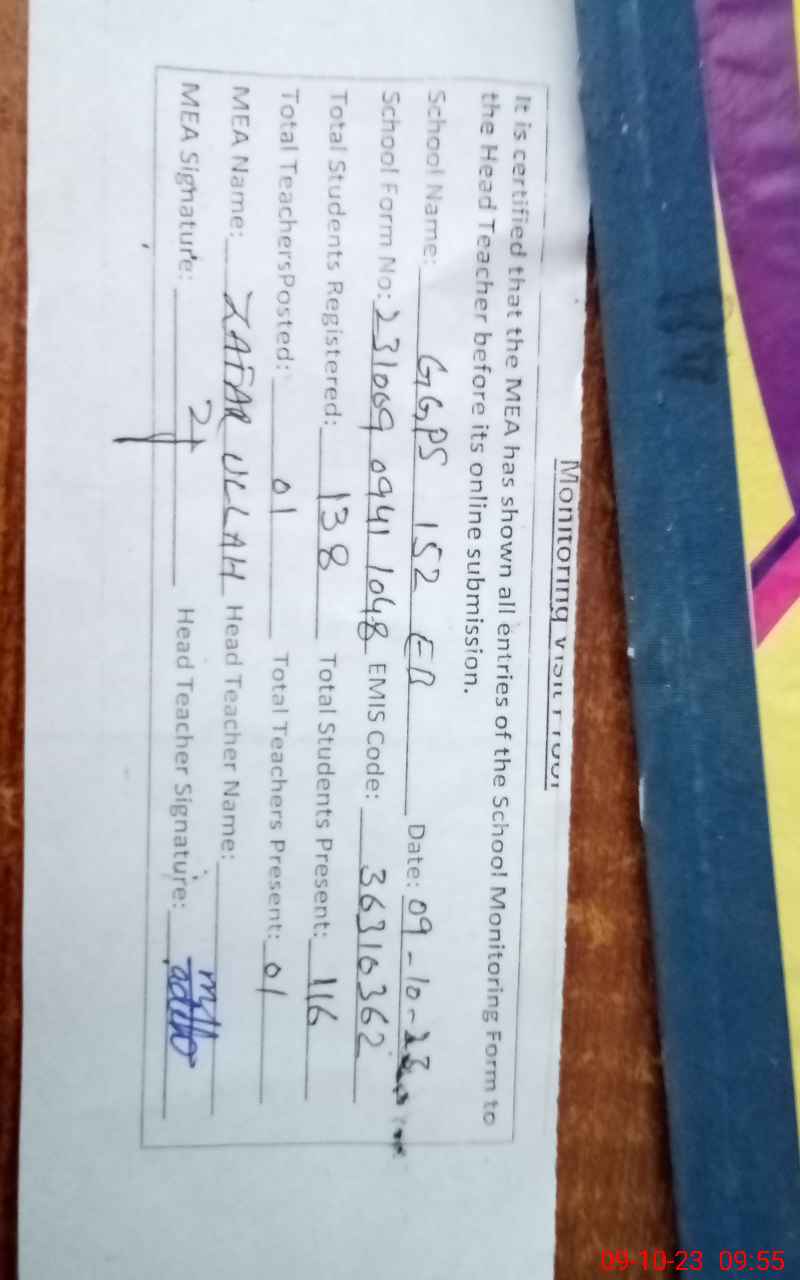 Monitoring Visit Proof
It is certified that the MEA has shown all entries of the School Monitoring Form to
the Head Teacher before its online submission.
School Name: GGPS 152 EB Date: 09-10-23
School Form No: 231069 0941 1048 EMIS Code: 36310362
Total Students Registered: 138 Total Students Present: 116
Total TeachersPosted: 01 Total Teachers Present: 01
MEA Name: ZAFAR ULLAH Head Teacher Name:
MEA Signature: Head Teacher Signature:
09-10-23 09:55